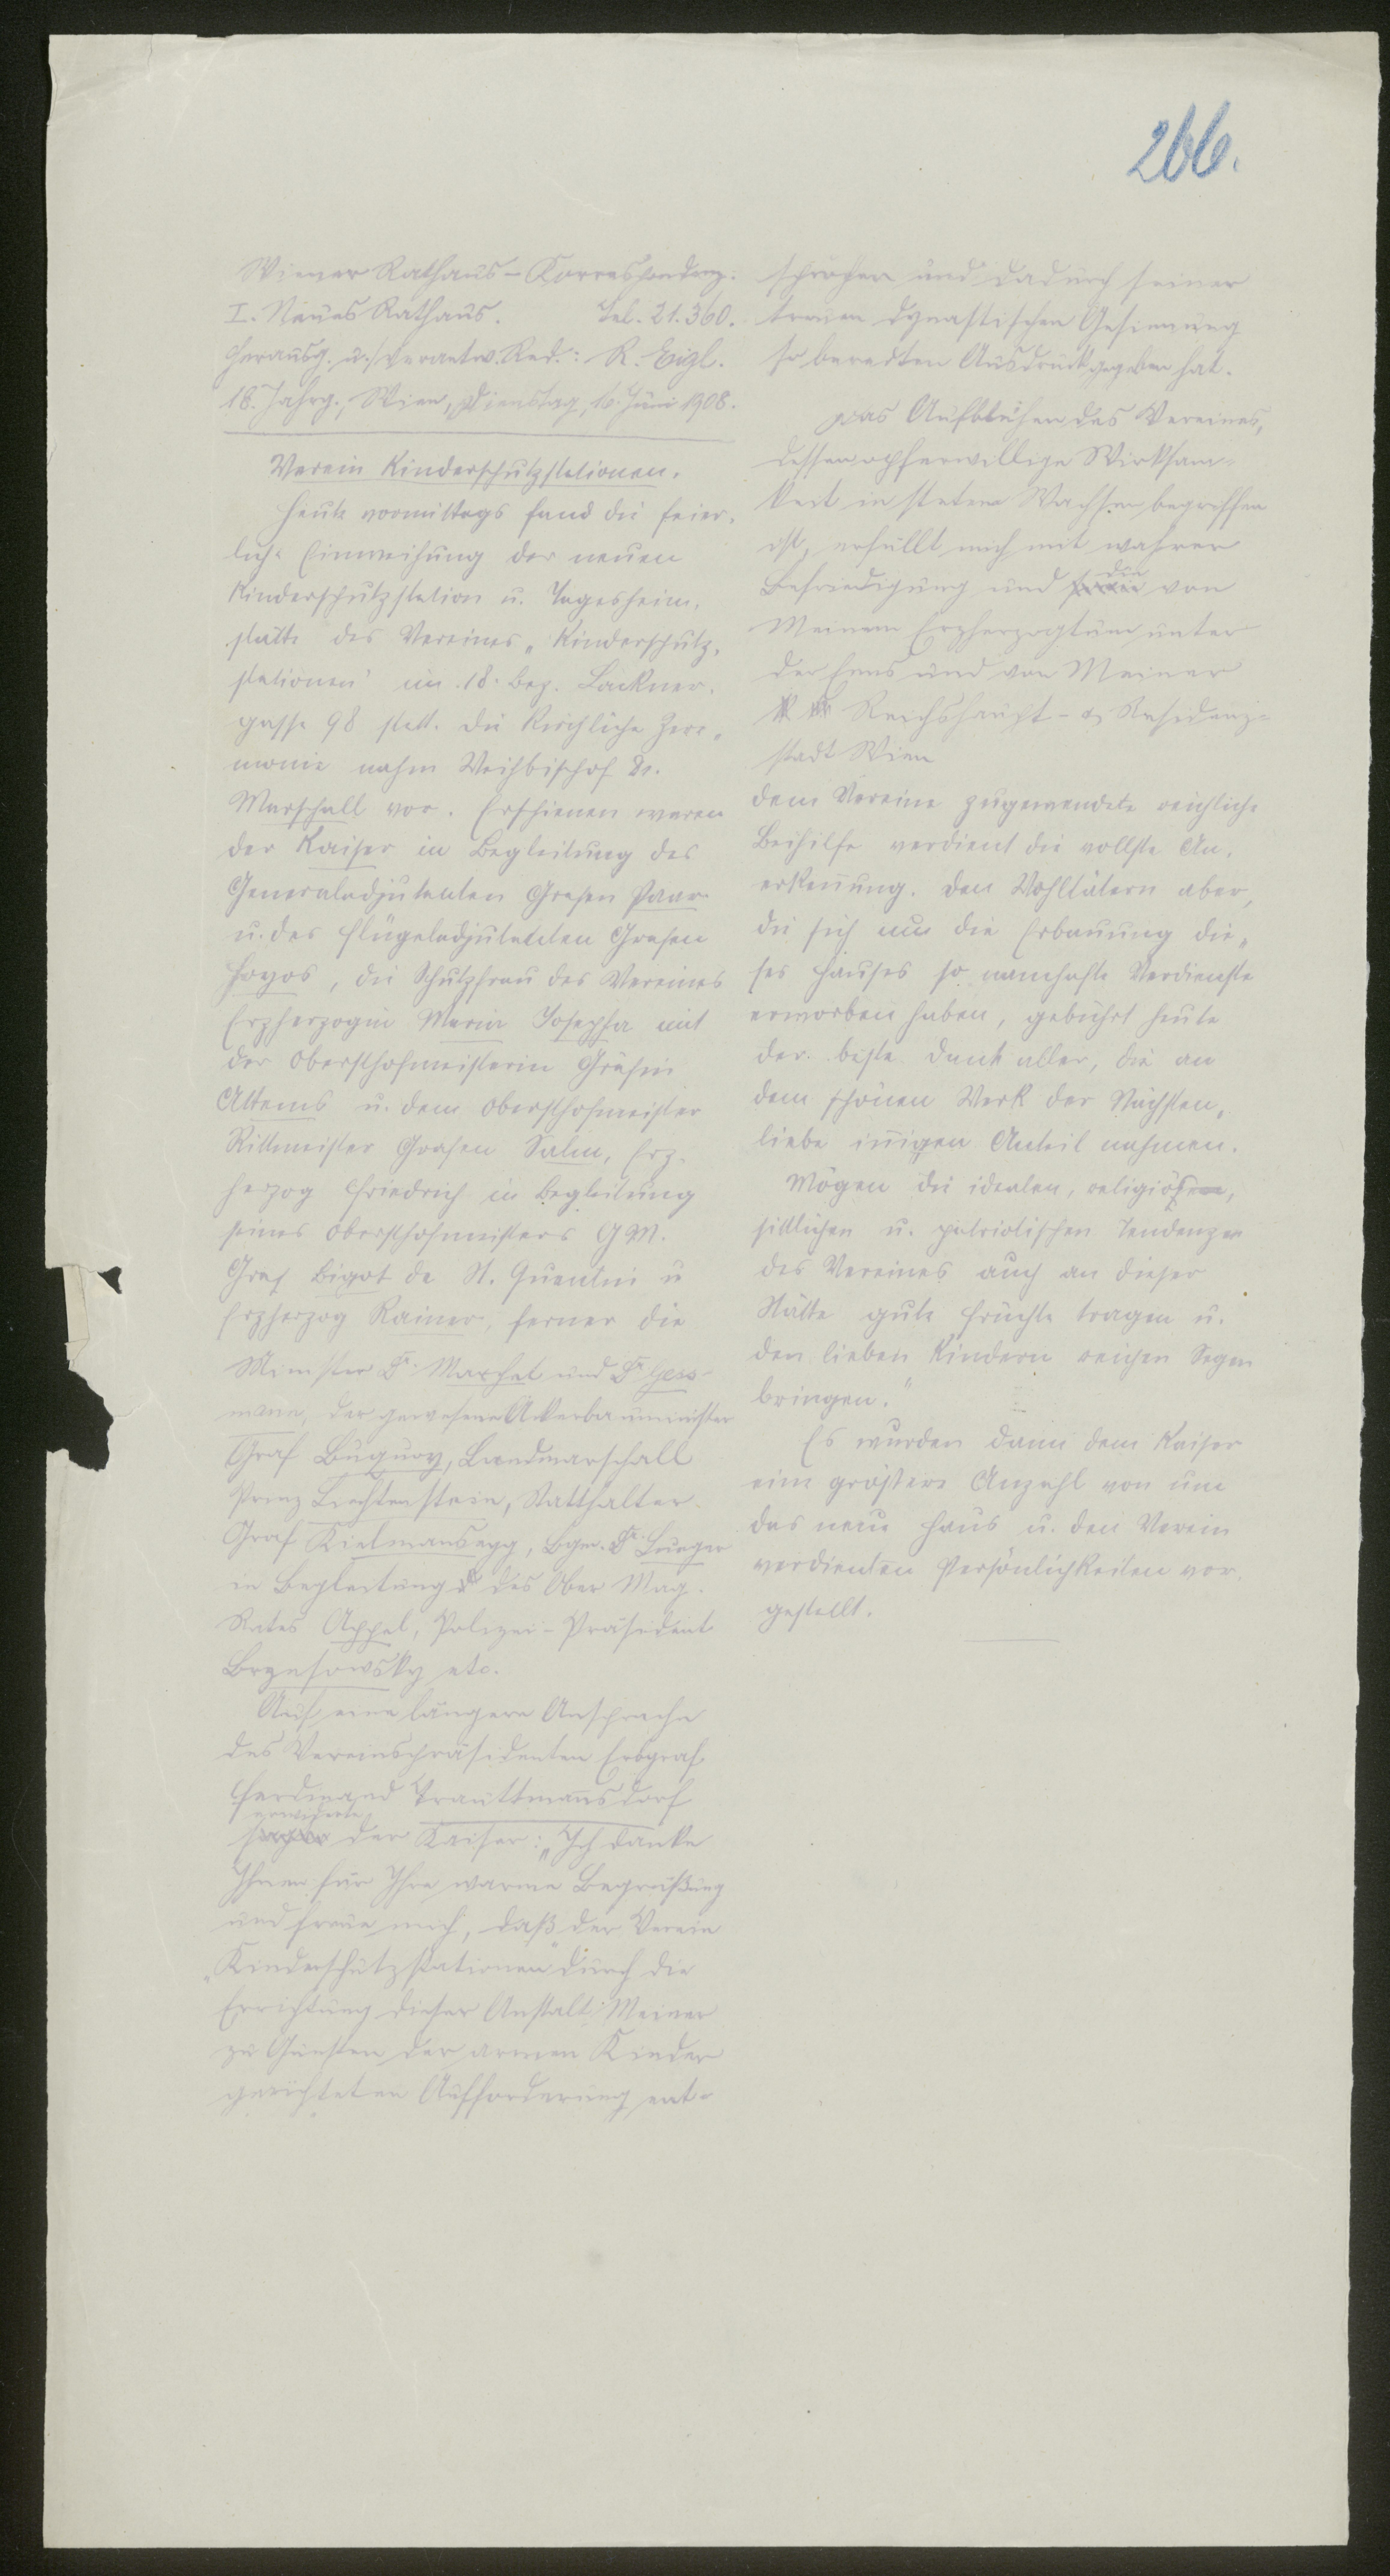 266.
Wiener Rathaus-Korrespondenz.
I. Neues Rathaus. Tel. 21.360.
Herausg. u. verantw. Red.: R. Eigl.
18. Jahrg., Wien, Dienstag, 16. Juni 1908.
Verein Kinderschutzstationen.
Heute vormittags fand die feier-
liche Einweihung der neuen
Kinderschutzstation u. Tagesheim-
stätte des Vereines „Kinderschutz-
stationen" im 18. Bez. Lackner-
gasse 98 statt. Die kirchliche Zere-
monie nahm Weihbischof Dr.
Marschall vor. Erschienen waren
der Kaiser in Begleitung des
Generaladjutanten Grafen Paar
u. des Flügeladjutanten Grafen
Hoyos, die Schutzfrau des Vereines
Erzherzogin Maria Josepha mit
der Obersthofmeisterin Gräfin
Attems u. dem Obersthofmeister
Rittmeister Grafen Salm, Erz-
herzog Friedrich in Begleitung
seines Obersthofmeisters GM.
Graf Bigot de St. Quentin u
Erzherzog Rainer, ferner die
Minister Dr. Marchet und Dr. Gess-
mann, der gewesene Ackerbauminister
Graf Buquoy, Landmarschall
Prinz Liechtenstein, Statthalter
Graf Kielmansegg, Bgm. Dr. Lueger
in Begleitung des Ober Mag.
Rates Appel, Polizei-Präsident
Brzesowsky etc.
Auf eine längere Ansprache
des Vereinspräsidenten Erbgraf
Ferdinand Trauttmansdorf
erwiderte
der Kaiser: „Ich danke
Ihnen für Ihre warme Begrüßung
und freue mich, daß der Verein
„Kinderschutzstationen" durch die
Errichtung dieser Anstalt Meiner
zu Gunsten der armen Kinder
gerichteten Aufforderung ent-
sprochen und dadurch seiner
treuen dynastischen Gesinnung
so beredten Ausdruck gegeben hat.
Das Aufblühen des Vereines,
dessen opferwillige Wirksam-
keit in stetem Wachsen begriffen
ist, erfüllt mich mit wahrer
Befriedigung und die von
Meinem Erzherzogtume unter
der Enns und von Meiner
Reichshaupt- & Residenz-
stadt Wien
dem Vereine zugewendete reichliche
Beihilfe verdient die vollste An-
erkennung. Den Wohltätern aber,
die sich um die Erbauung die-
ses Hauses so namhafte Verdienste
erworben haben, gebührt heute
der beste Dank aller, die an
dem schönen Werk der Nächsten-
liebe innigen Anteil nehmen.
Mögen die idealen, religiösen,
sittlichen u. patriotischen Tendenzen
des Vereines auch an dieser
Stätte gute Früchte tragen u.
den lieben Kindern reichen Segen
bringen."
Es wurden dann dem Kaiser
eine grössere Anzahl von um
das neue Haus u. den Verein
verdienten Persönlichkeiten vor-
gestellt.